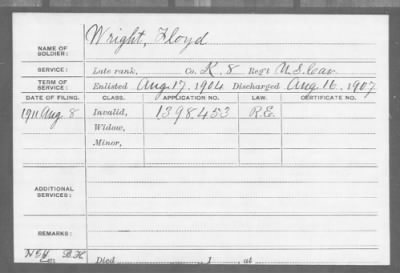 NAME OF SOLDIER: Wright, Floyd
SERVICE: Late rank, Co. K. 8 Reg't U.S. Cav.
TERM OF SERVICE: Enlisted Aug. 17, 1904 Discharged Aug. 16, 1907
DATE OF FILING. CLASS. APPLICATION NO. LAW. CERTIFICATE NO.
1911 Aug. 8 Invalid, 1398453 R.E.
Widow,
Minor,
ADDITIONAL SERVICES:
REMARKS:
Died , 1 , at